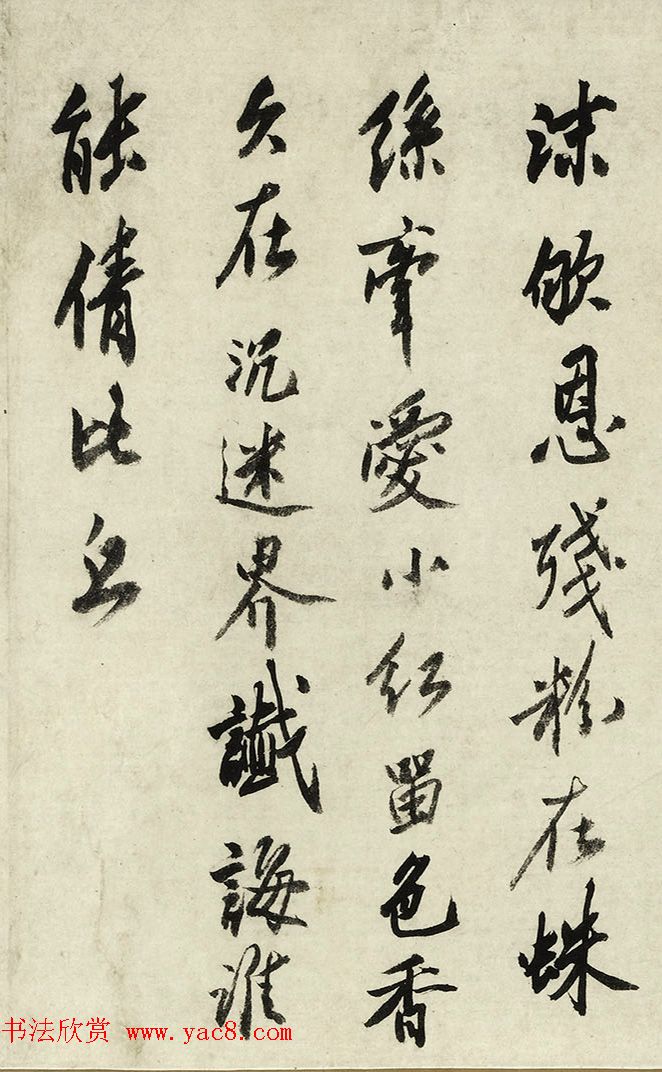 沫恩殘粉在蛛
絲牽愛小紅留色香
久在沉迷界讖誨誰
能倩比丘
书法欣赏 www.yac8.com